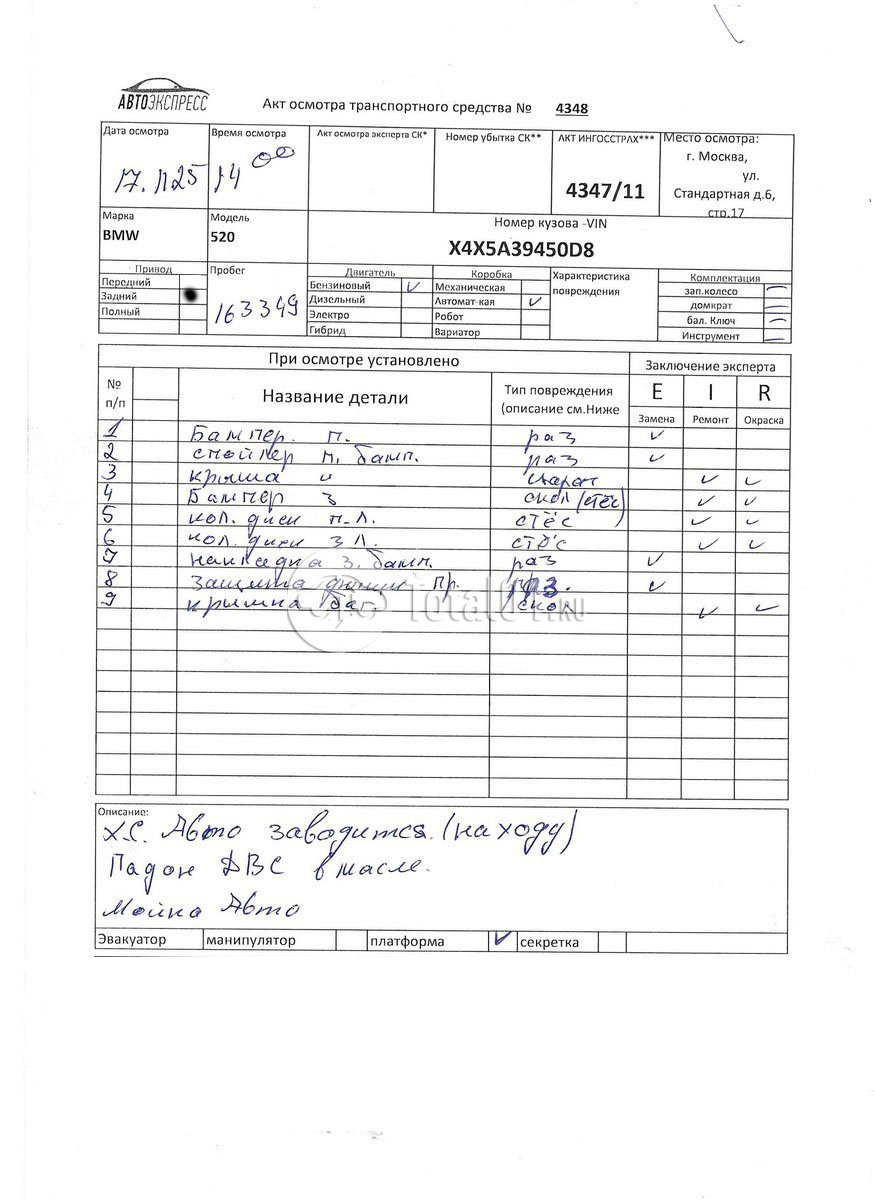 АВТОЭКСПРЕСС
Акт осмотра транспортного средства № 4348
Дата осмотра Время осмотра Акт осмотра эксперта СК* Номер убытка СК** АКТ ИНГОССТРАХ*** Место осмотра:
17. 1125 14 00 4347/11 г. Москва,
ул.
Стандартная д.6,
стр.17
Марка Модель Номер кузова -VIN
BMW 520 X4X5A39450D8
Привод Пробег Двигатель Коробка Характеристика повреждения Комплектация
Передний Бензиновый ✓ Механическая зап.колесо —
Задний ● Дизельный Автомат-кая ✓ домкрат —
Полный 163349 Электро Робот бал. Ключ —
Гибрид Вариатор Инструмент —
При осмотре установлено Заключение эксперта
№ п/п Название детали Тип повреждения (описание см.Ниже E I R
Замена Ремонт Окраска
1 Бампер. п. раз ✓
2 спойлер п. бамп. раз ✓
3 крыша царап ✓ ✓
4 Бампер З скол (стёс) ✓ ✓
5 кол. диск п.л. стёс ✓ ✓
6 кол. диск з л. стёс ✓ ✓
7 накладка з. бамп. раз ✓
8 защита днища пр. раз. ✓
9 крышка баг. скол ✓ ✓
Total01.RU
Описание:
Х.С. Авто заводится. (на ходу)
Падон ДВС в масле.
Мойка Авто
Эвакуатор манипулятор платформа ✓ секретка